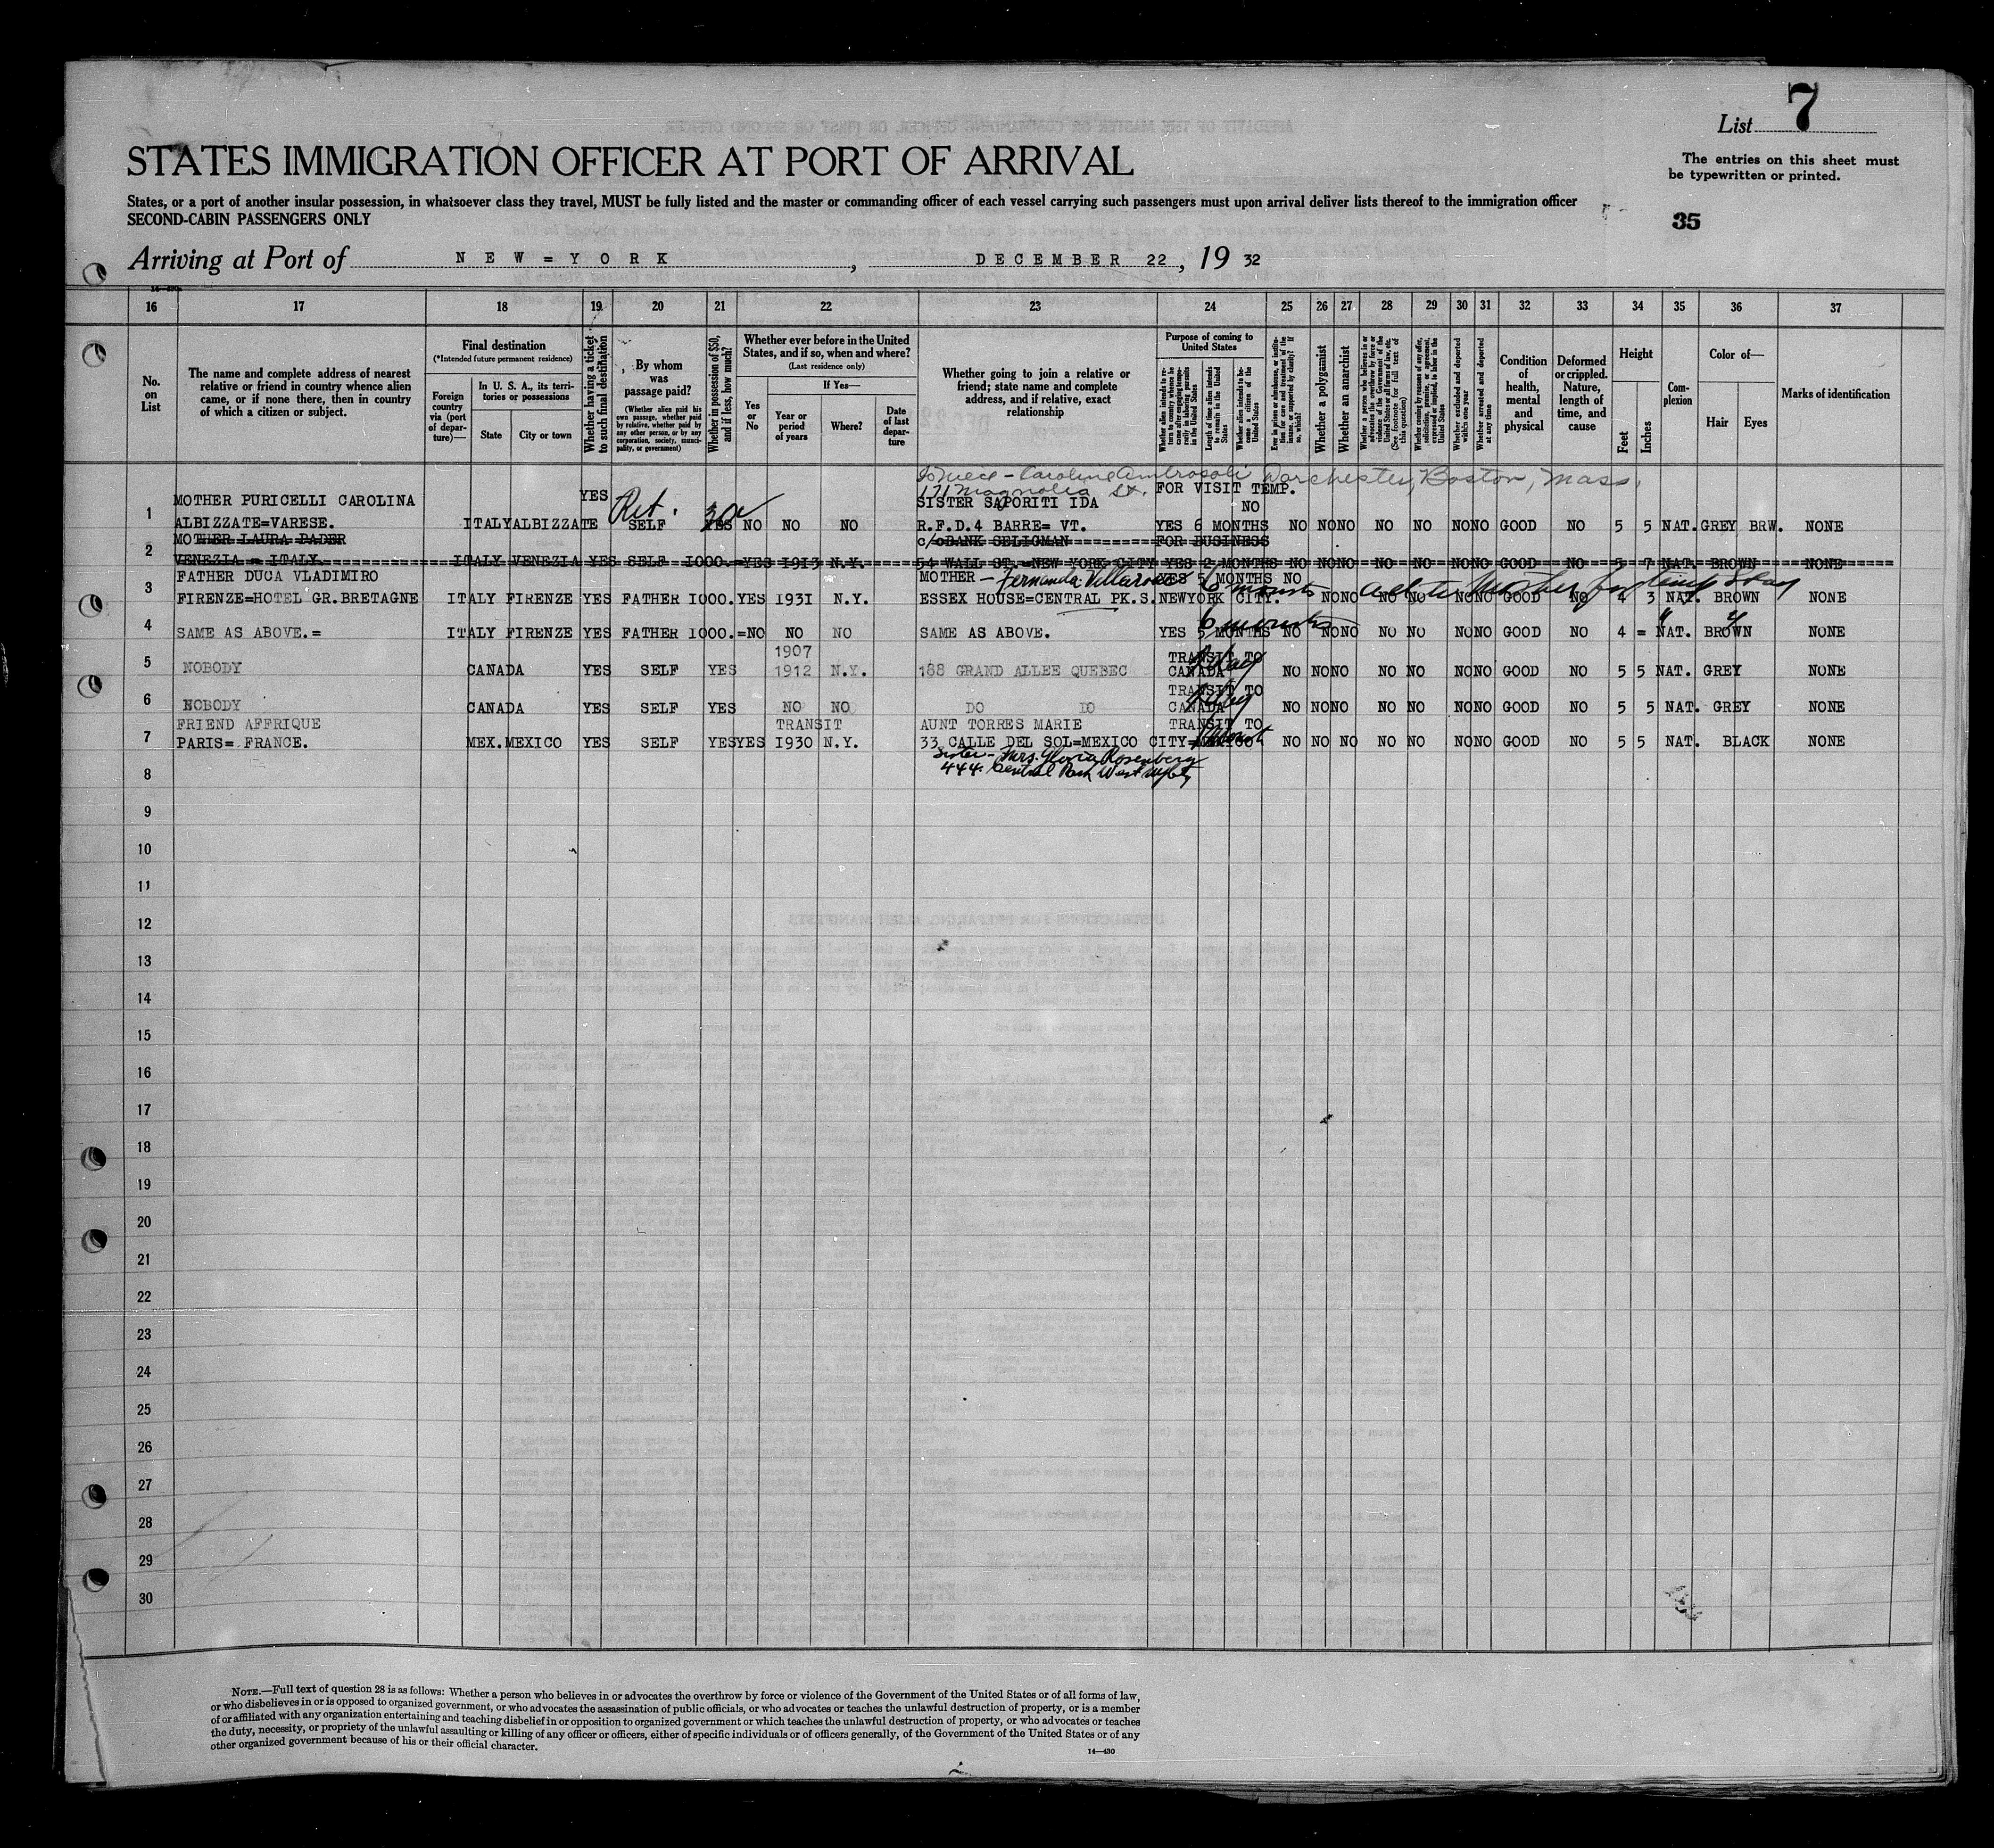 List 7
STATES IMMIGRATION OFFICER AT PORT OF ARRIVAL
The entries on this sheet must
be typewritten or printed.
States, or a port of another insular possession, in whatsoever class they travel, MUST be fully listed and the master or commanding officer of each vessel carrying such passengers must upon arrival deliver lists thereof to the immigration officer
SECOND-CABIN PASSENGERS ONLY
35
Arriving at Port of NEW=YORK, DECEMBER 22, 19 32
16 17 18 19 20 21 22 23 24 25 26 27 28 29 30 31 32 33 34 35 36 37
No. on List
The name and complete address of nearest relative or friend in country whence alien came, or if none there, then in country of which a citizen or subject.
Final destination
(*Intended future permanent residence)
Foreign country via (port of departure)—
In U. S. A., its territories or possessions
State City or town
Whether having a ticket to such final destination
By whom was passage paid?
(Whether alien paid his own passage, whether paid by relative, whether paid by any other person, or by any corporation, society, municipality, or government)
Whether in possession of $50, and if less, how much?
Whether ever before in the United States, and if so, when and where?
(Last residence only)
Yes or No
If Yes—
Year or period of years
Where?
Date of last departure
Whether going to join a relative or friend; state name and complete address, and if relative, exact relationship
Purpose of coming to United States
Whether alien intends to return to country whence he came after engaging temporarily in laboring pursuits in the United States
Length of time alien intends to remain in the United States
Whether alien intends to become a citizen of the United States
Ever in prison or almshouse, or institution for care and treatment of the insane, or supported by charity? If so, which?
Whether a polygamist
Whether an anarchist
Whether a person who believes in or advocates the overthrow by force or violence of the Government of the United States or all forms of law, etc. (See footnote for full text of this question)
Whether coming by reason of any offer, solicitation, promise, or agreement, expressed or implied, to labor in the United States
Whether excluded and deported within one year
Whether arrested and deported at any time
Condition of health, mental and physical
Deformed or crippled. Nature, length of time, and cause
Height
Feet Inches
Complexion
Color of—
Hair Eyes
Marks of identification
Niece - Caroline Ambrosoli Dorchester, Boston, Mass.
171 Magnolia St. FOR VISIT TEMP.
1 MOTHER PURICELLI CAROLINA YES Ret. SISTER SAPORITI IDA NO
ALBIZZATE=VARESE. ITALY ALBIZZATE SELF YES NO NO NO R.F.D.4 BARRE= VT. YES 6 MONTHS NO NO NO NO NO NO NO GOOD NO 5 5 NAT. GREY BRW. NONE
2 MOTHER LAURA DADER c/o BANK SELIGMAN FOR BUSINESS
VENEZIA = ITALY. ITALY VENEZIA YES SELF 1000.=YES 1913 N.Y. 54 WALL ST.=NEW YORK CITY YES 2 MONTHS NO NO NO NO NO NO NO GOOD NO 5 7 NAT. BROWN NONE
3 FATHER DUCA VLADIMIRO MOTHER - Fernanda Villarosa YES 5 MONTHS NO
FIRENZE=HOTEL GR.BRETAGNE ITALY FIRENZE YES FATHER 1000. YES 1931 N.Y. ESSEX HOUSE=CENTRAL PK.S. NEWYORK CITY. 6 months NO NO NO NO NO NO GOOD NO 4 3 NAT. BROWN NONE
4 SAME AS ABOVE.= ITALY FIRENZE YES FATHER 1000.=NO NO NO SAME AS ABOVE. YES 5 MONTHS 6 months NO NO NO NO NO NO NO GOOD NO 4 = NAT. BROWN NONE
5 NOBODY CANADA YES SELF YES 1907 1912 N.Y. 188 GRAND ALLEE QUEBEC TRANSIT TO CANADA NO NO NO NO NO NO NO GOOD NO 5 5 NAT. GREY NONE
6 NOBODY CANADA YES SELF YES NO NO DO DO TRANSIT TO CANADA NO NO NO NO NO NO NO GOOD NO 5 5 NAT. GREY NONE
7 FRIEND AFFRIQUE TRANSIT AUNT TORRES MARIE TRANSIT TO
PARIS= FRANCE. MEX. MEXICO YES SELF YES YES 1930 N.Y. 33 CALLE DEL SOL=MEXICO CITY=MEXICO NO NO NO NO NO NO NO GOOD NO 5 5 NAT. BLACK NONE
Sister - Mrs. Gloria Rosenberg
8 444 Central Park West
9
10
11
12
13
14
15
16
17
18
19
20
21
22
23
24
25
26
27
28
29
30
NOTE.—Full text of question 28 is as follows: Whether a person who believes in or advocates the overthrow by force or violence of the Government of the United States or of all forms of law,
or who disbelieves in or is opposed to organized government, or who advocates the assassination of public officials, or who advocates or teaches the unlawful destruction of property, or is a member
of or affiliated with any organization entertaining and teaching disbelief in or opposition to organized government or which teaches the unlawful destruction of property, or who advocates or teaches
the duty, necessity, or propriety of the unlawful assaulting or killing of any officer or officers, either of specific individuals or of officers generally, of the Government of the United States or of any
other organized government because of his or their official character.
14—430